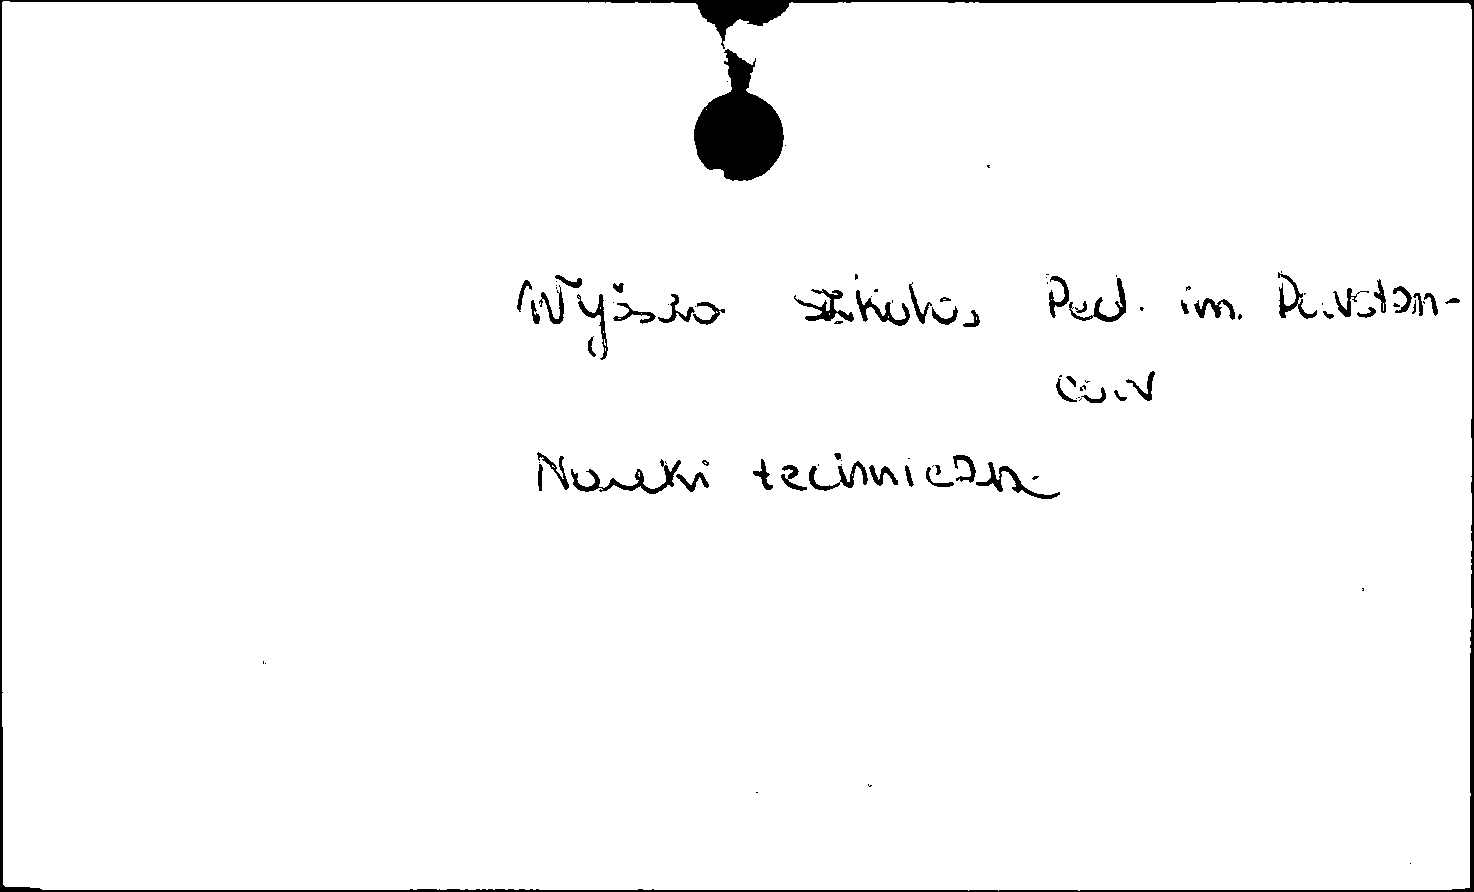 Wyższa szkoła, Ped. im. Powstań-
ców
Nauki techniczne